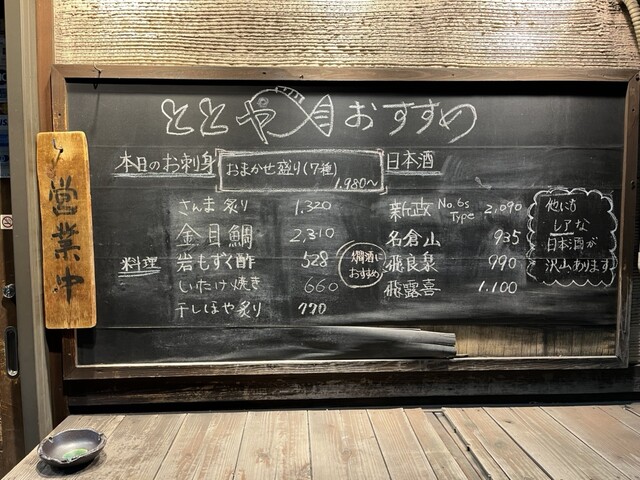 ととや おすすめ
営業中
本日のお刺身
おまかせ盛り(7種)
1,980~
さんま炙り 1,320
金目鯛 2,310
料理
岩もずく酢 528
いたけ焼き 660
干しほや炙り 770
燗酒に
おすすめ
日本酒
新政 No.6s Type 2,090
名倉山 935
飛良泉 990
飛露喜 1,100
他にも
レアな
日本酒が
沢山あります